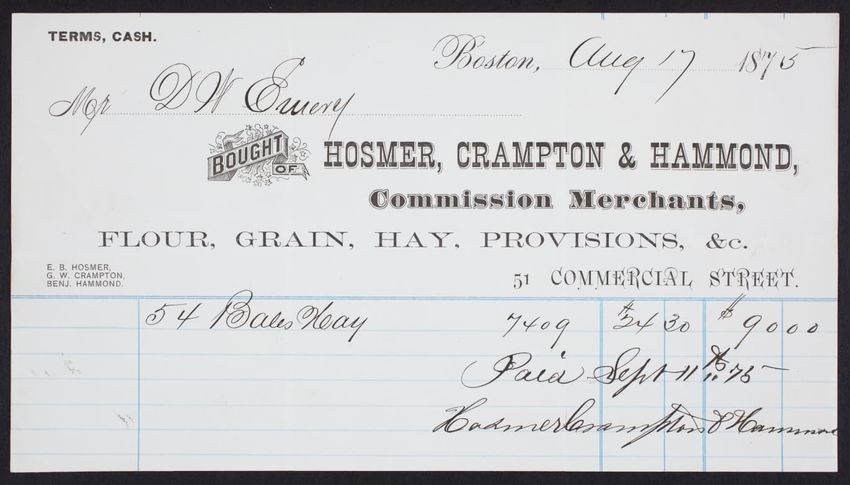 TERMS, CASH.
Boston, Aug 17 1875
Mr D W Emery
BOUGHT OF HOSMER, CRAMPTON & HAMMOND,
Commission Merchants,
FLOUR, GRAIN, HAY, PROVISIONS, &c.
E. B. HOSMER,
G. W. CRAMPTON,
BENJ. HAMMOND.
51 COMMERCIAL STREET.
54 Bales Hay 7409 $24 30 $90 00
Paid Sept 11 75
Hosmer Crampton & Hammond